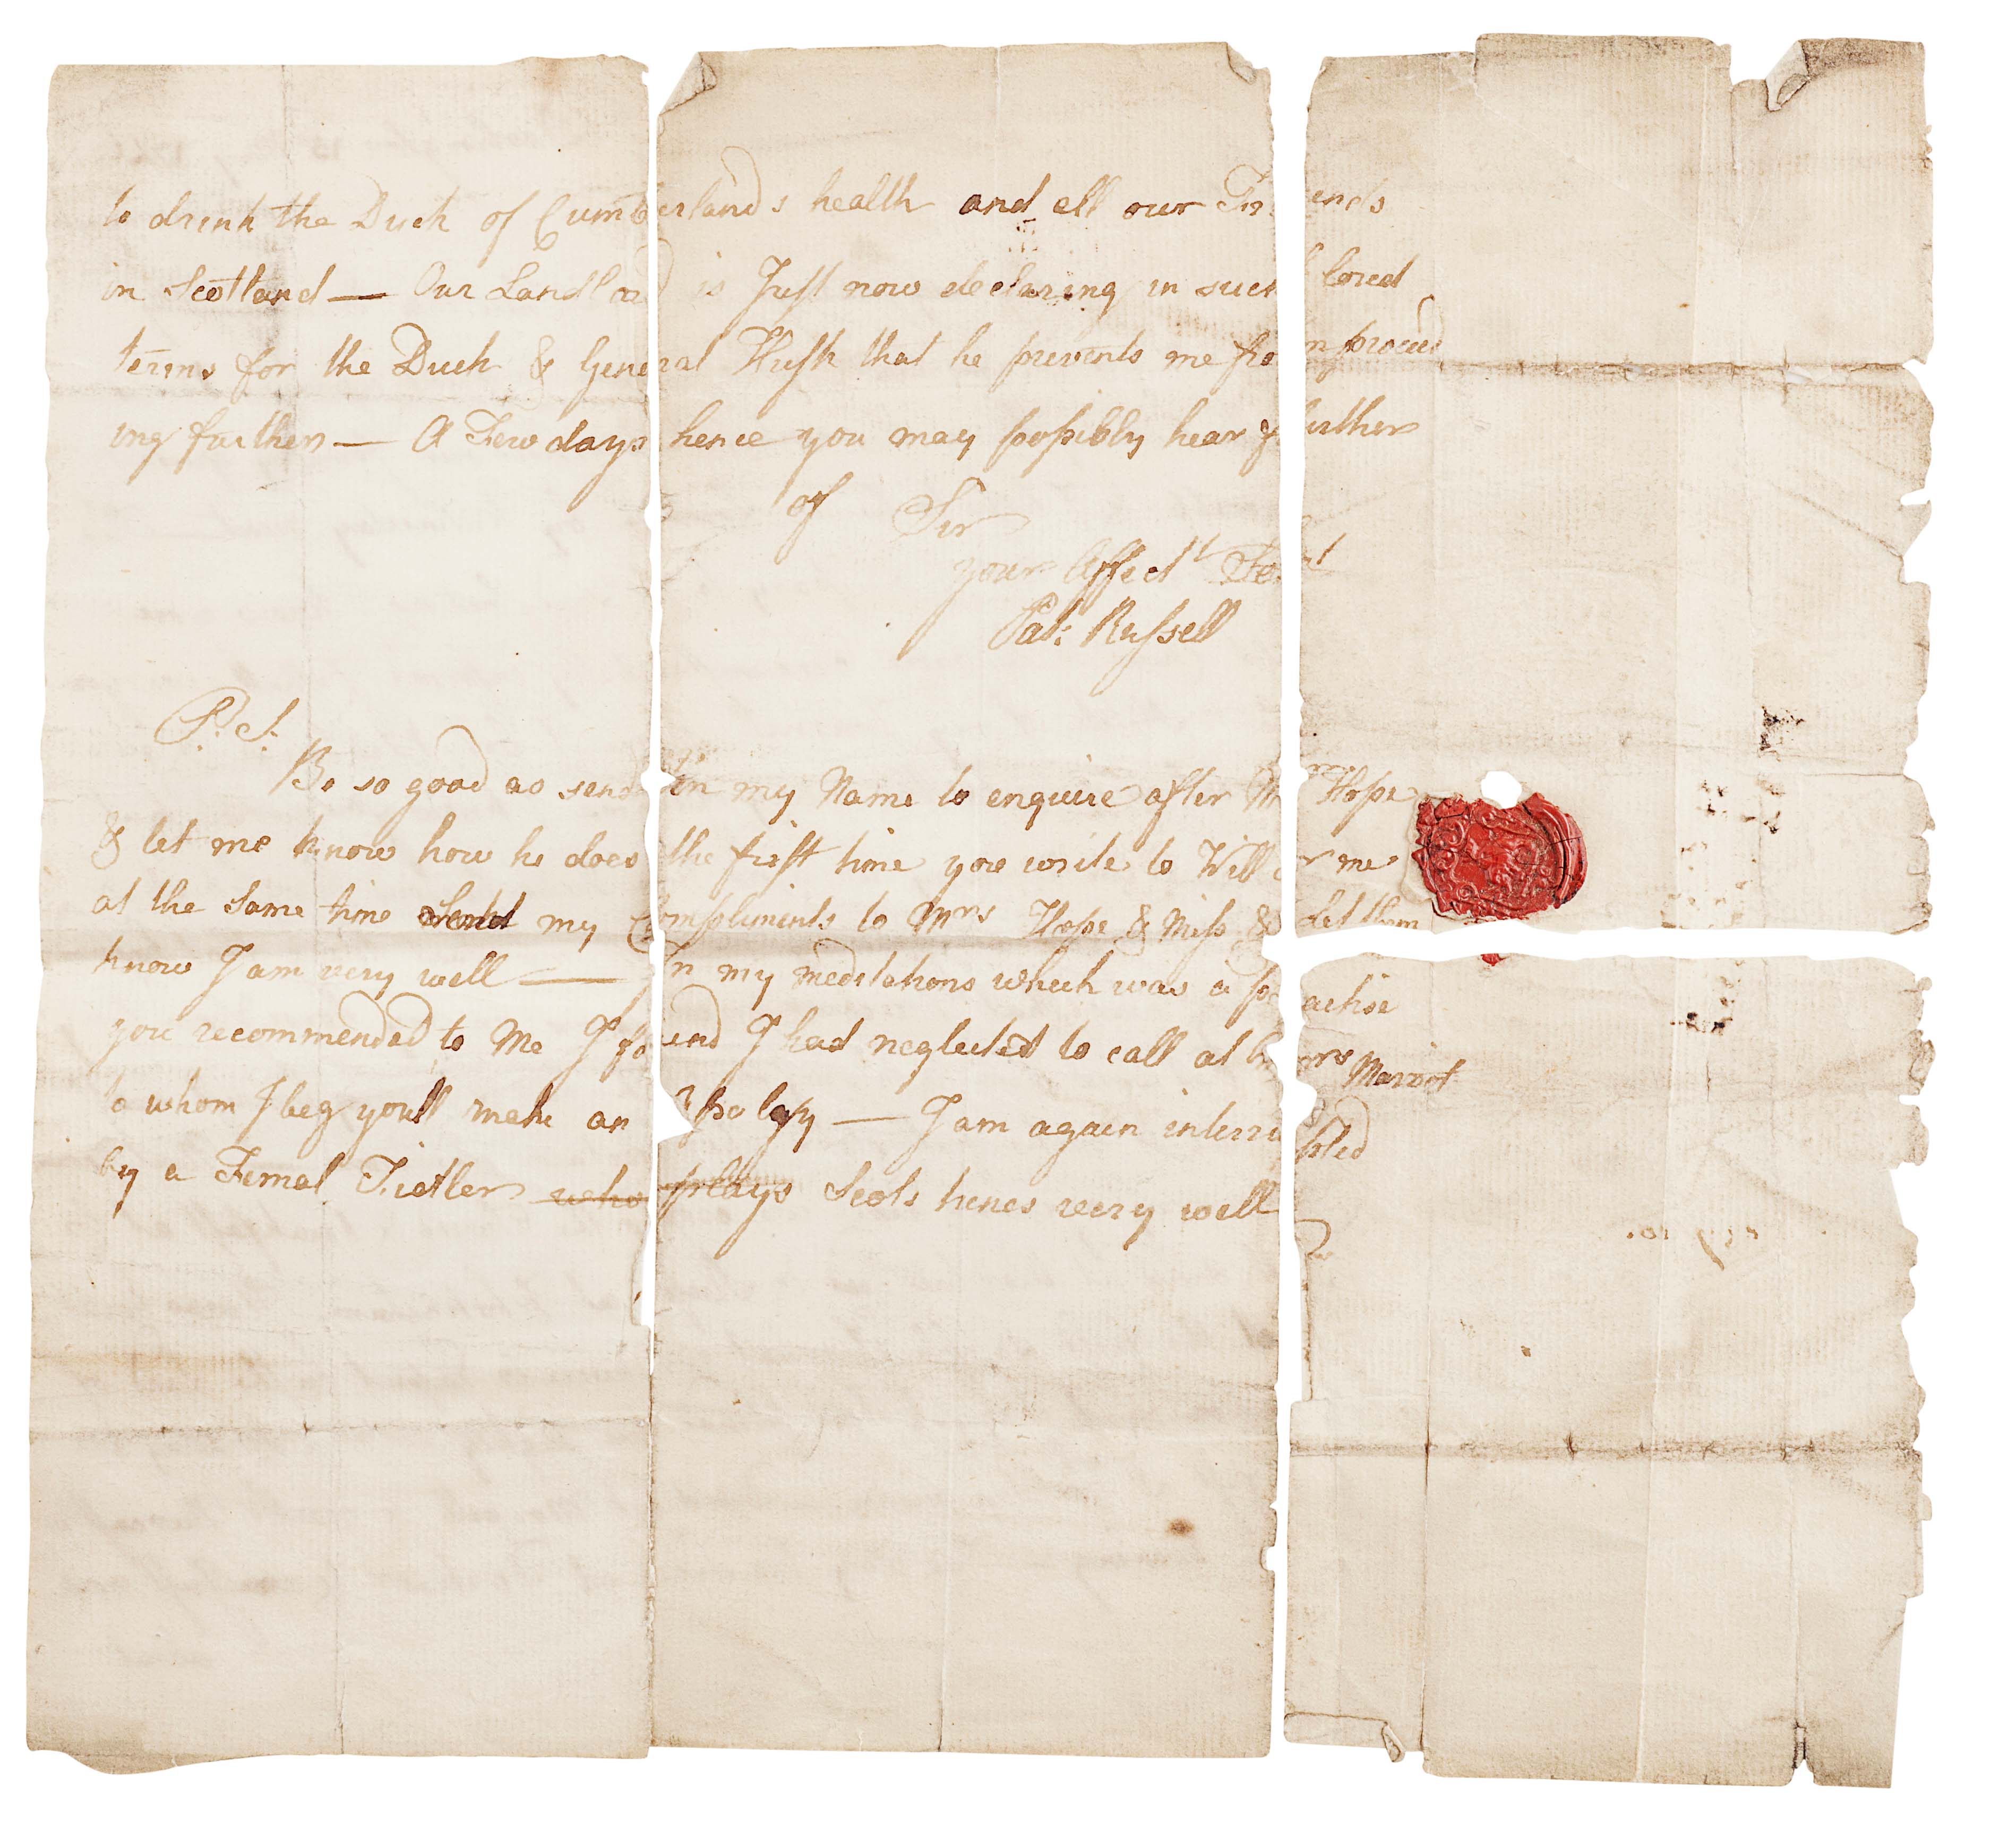 to drink the Duck of Cumberlands health and all our Friends
in Scotland — Our Landlord is Just now declaring in such loud
terms for the Duck & General Husk that he prevents me from proceed
ing further — A Few days hence you may possibly hear further
of Sir
your Affect
Pat: Russell
P.S.
Be so good as send in my Name to enquire after Mr Hope
& let me know how he does the first time you write to Will or me
at the same time send my Compliments to Mrs Hope & Miss & Let them
know I am very well — In my meditations which was a practise
you recommended to Me I found I had neglected to call at
to whom I beg youll make an Apology — I am again interrupted
by a Femal Fidler who plays Scots tunes very well